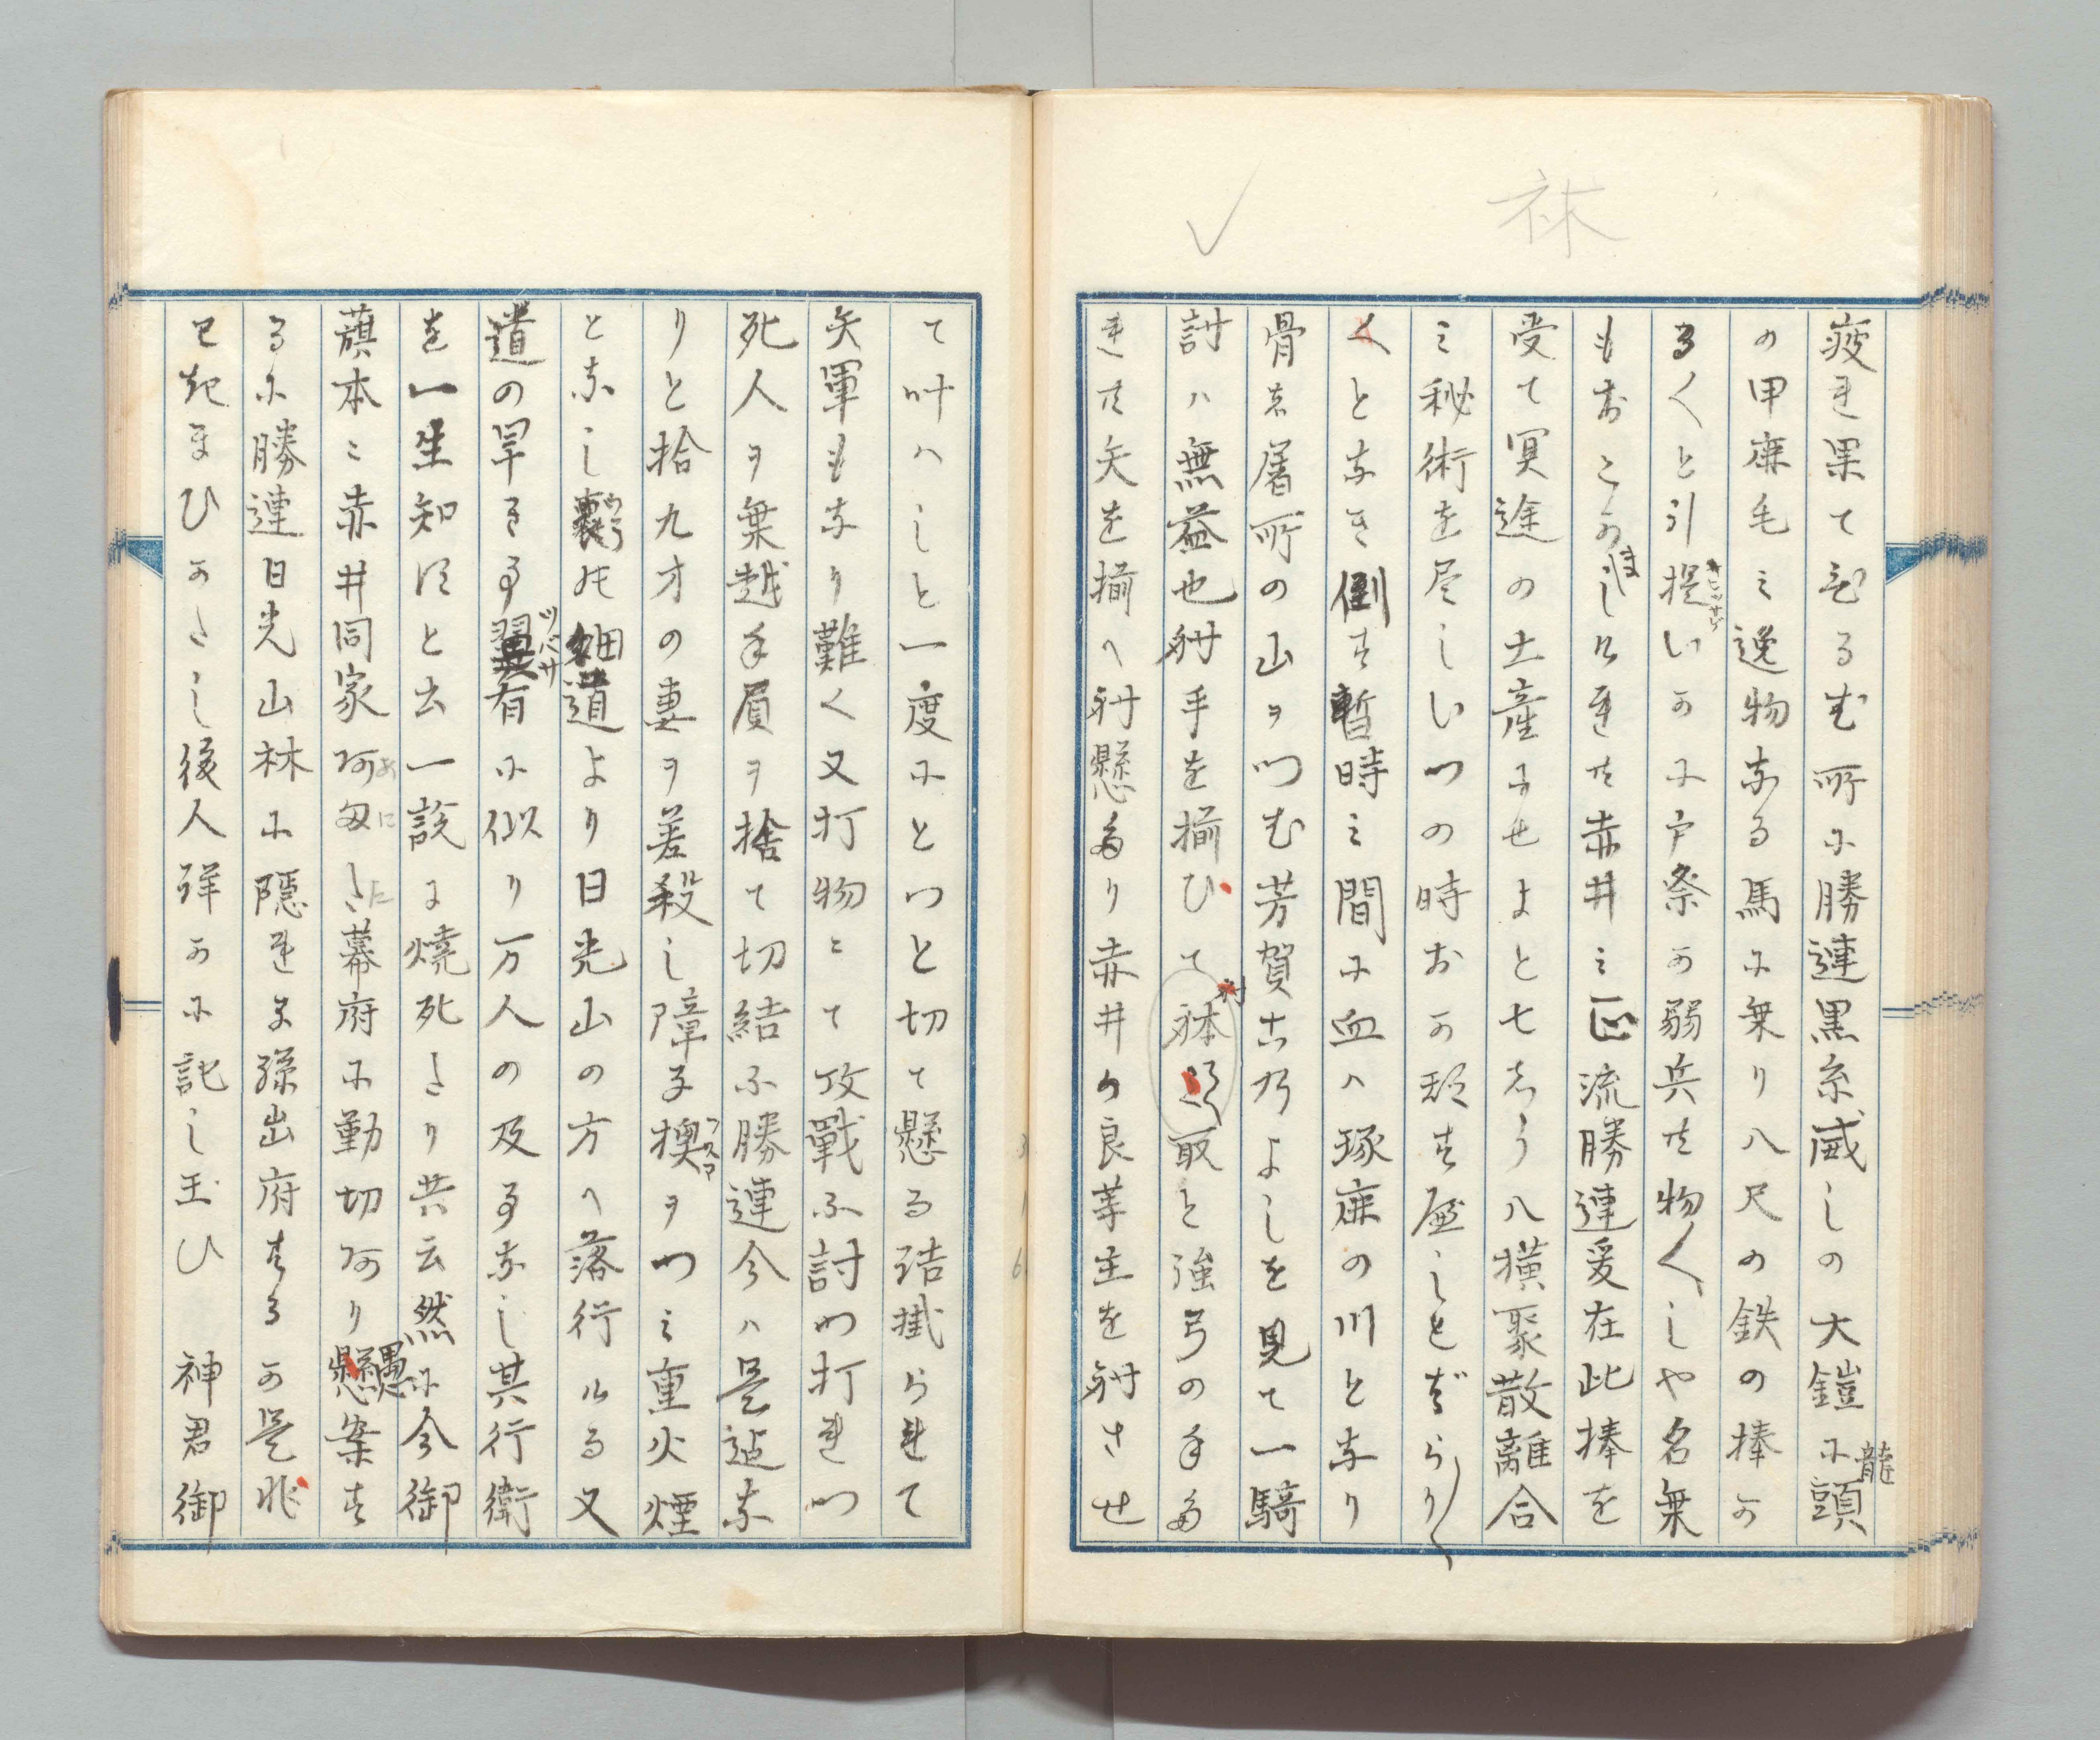 疲れ果てむる所に勝連黒糸威しの大鎧に龍頭
の甲鹿毛之逸物なる馬に乗り八尺の鉄の棒か
るくと引提いかに戸祭か弱兵共物くしや名乗
もおこかましけれ共赤井之正流勝連爰在此棒を
受て冥途の土産にせよと七しう八横聚散離合
之秘術を尽しいつの時おか期す屋しとぎらりく
くとなき倒す暫時之間に血ハ琢鹿の川となり
骨は屠所の山ヲつむ芳賀よしを見て一騎
討ハ無益也射手を揃ひて射取と強弓の手多
き共矢を揃へ射懸多り赤井の良等主を射させ
て叶ハしと一度にとつと切て懸る詰掛られて
矢軍もなり難く又打物ニて攻戦ふ討つ打れつ
死人ヲ乗越手屓ヲ捨て切結ふ勝連今ハ是迄な
りと拾九才の妻ヲ差殺し障子襖フスマヲつミ重火煙
となし裏ウラの細道より日光山の方へ落行ける又
道の早き事翼ツバサ有に似り万人の及事なし其行衛
を一生知すと云一説に焼死たり共云然に今御
旗本ニ赤井同家あまた幕府に勤切あり愚案す
るに勝連日光山林に隠れ子孫出府するか是非
をたまひかたし後人詳かに記し玉ひ　神君御
林